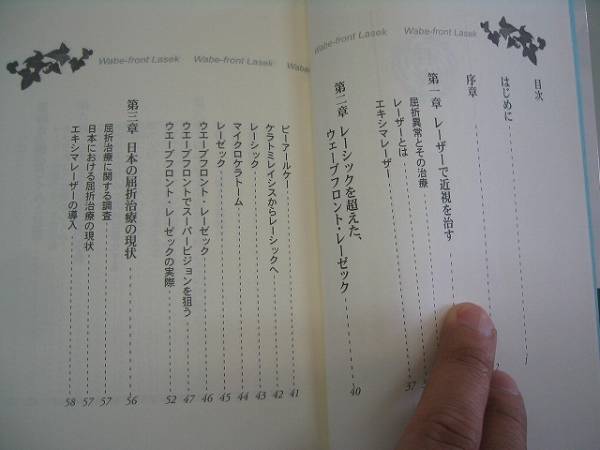 Wabe-front Lasek Wabe-front Lasek
目次
はじめに
序章
第一章 レーザーで近視を治す
屈折異常とその治療
レーザーとは 37
エキシマレーザー
第二章 レーシックを超えた、
ウェーブフロント・レーゼック 40
Wabe-front Lasek Wabe-front Lasek
ピーアールケー 41
ケラトミレイシスからレーシックへ 42
レーシック 43
マイクロケラトーム 44
レーゼック 45
ウエーブフロント・レーゼック 46
ウエーブフロントでスーパービジョンを狙う 47
ウエーブフロント・レーゼックの実際 52
第三章 日本の屈折治療の現状 56
屈折治療に関する調査 57
日本における屈折治療の現状 57
エキシマレーザーの導入 58